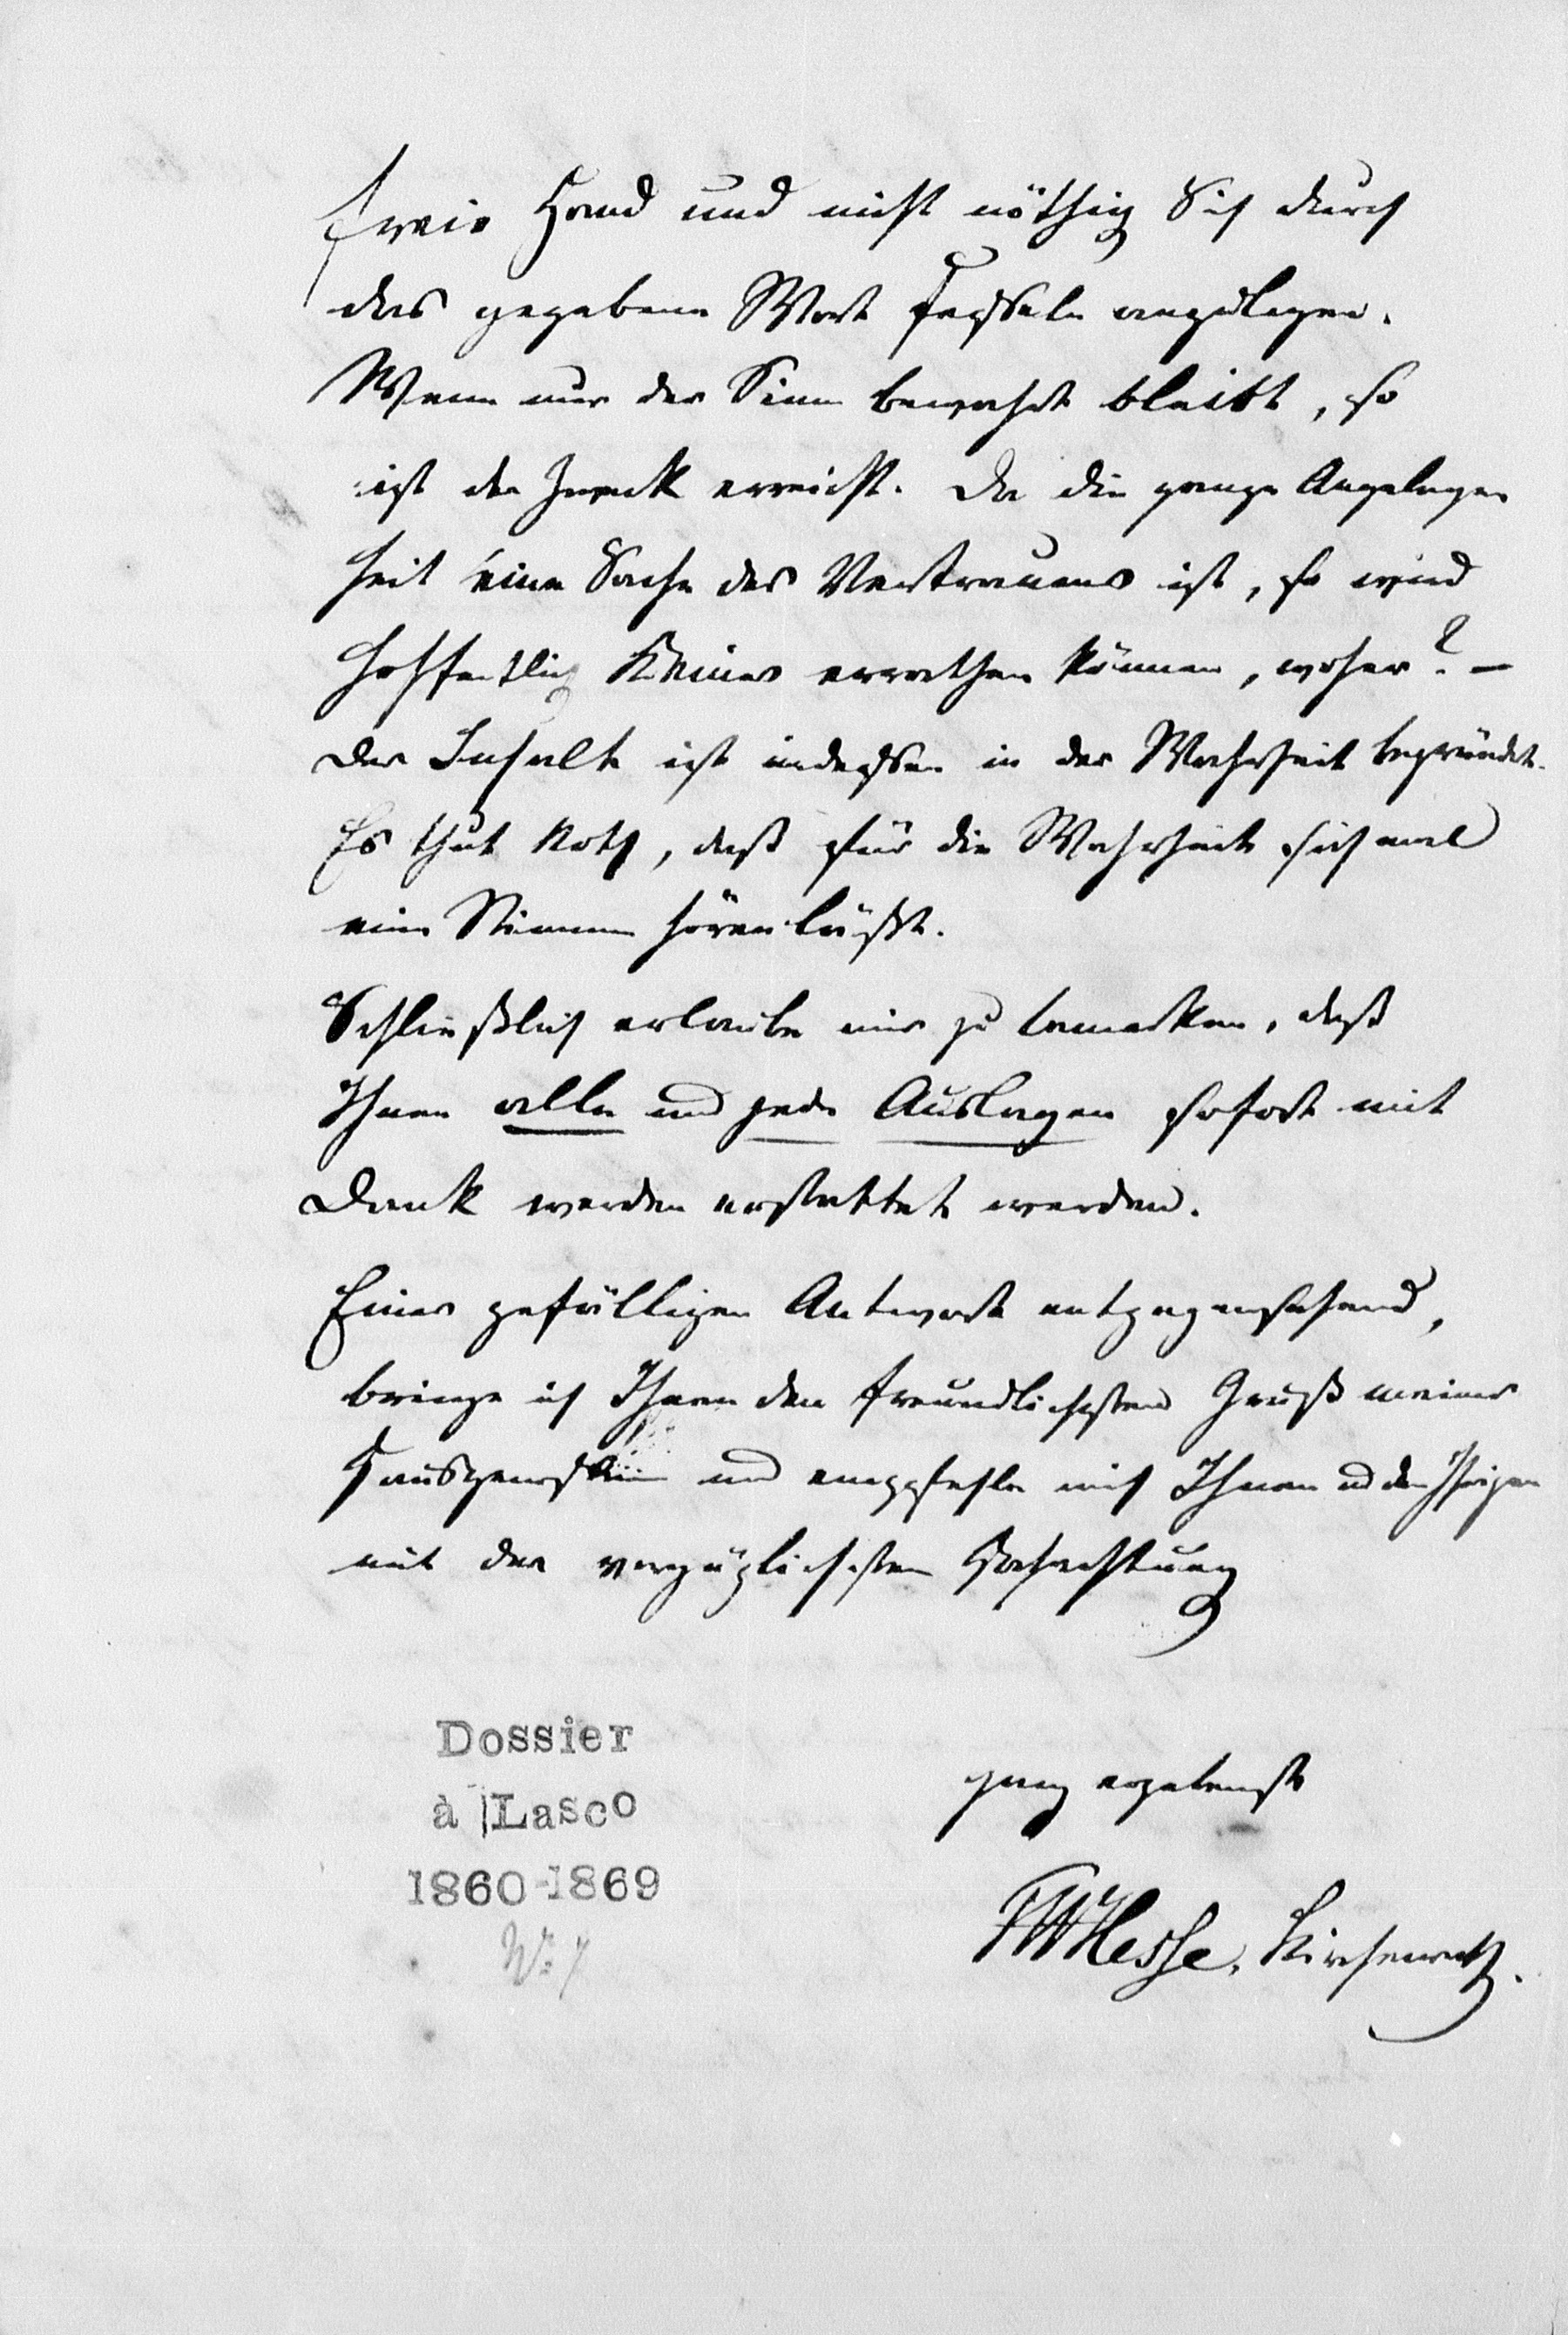 freie Hand und nicht nöthig Sich durch
das gegebene Wort Fesseln anzulegen.
Wenn nur der Sinn bewahrt bleibt, so
ist der Zweck erreicht. Da die ganze Angelegen
heit eine Sache des Vertrauens ist, so wird
hoffentlich Keiner errathen können, woher? –
Der Inhalt ist indessen in der Wahrheit begründet.
Es thut Noth, daß für die Wahrheit sich mal
eine Stimme hören läßt.
Schließlich erlaube mir zu bemerken, daß
Ihnen alle und jede Auslagen sofort mit
Dank werden erstattet werden.
Einer gefälligen Antwort entgegensehend,
bringe ich Ihnen den freundlichsten Gruß meiner
und empfehle mich Ihnen und den Ihrigen
mit der vorzüglichsten Hochachtung
ganz ergebenst
FWHesse, Kirchenrath.
Dossier
à Lasco
1860-1869